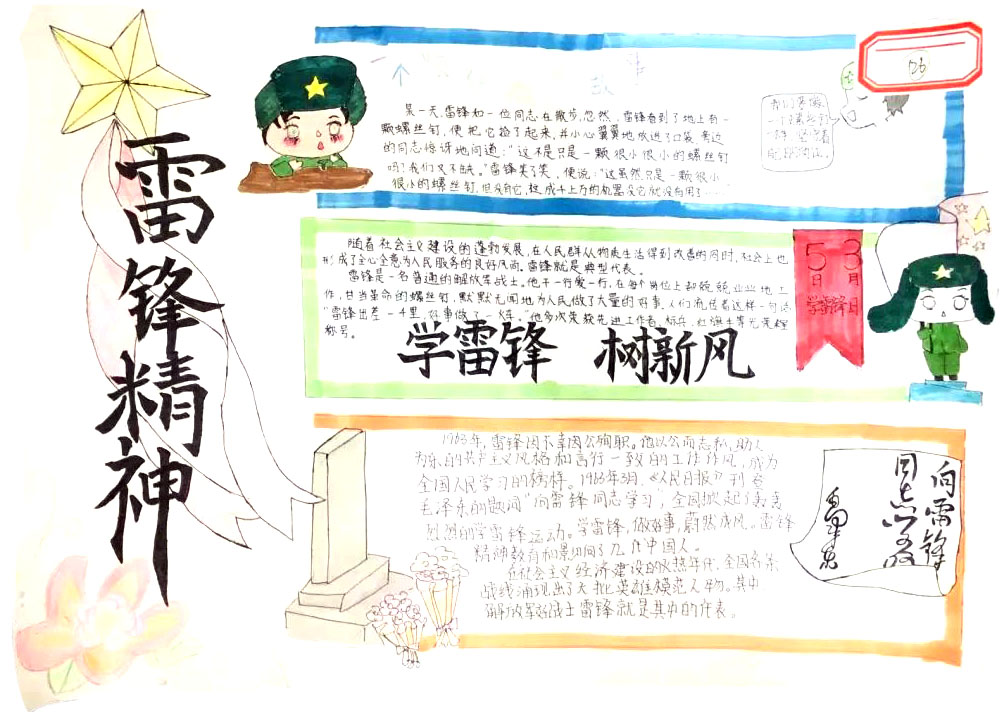 雷锋精神
故事
06
某一天,雷锋和一位同志在散步,忽然,雷锋看到了地上有一
颗螺丝钉,便把它捡了起来,并小心翼翼地放进了口袋,旁边
的同志惊讶地问道:"这不是只是一颗很小很小的螺丝钉
吗?我们又不缺。"雷锋笑了笑,便说:"这虽然只是一颗很小
很小的螺丝钉,但没有它,
随着社会主义建设的蓬勃发展,在人民群众物质生活得到改善的同时,社会上也
形成了全心全意为人民服务的良好风尚。雷锋就是典型代表。
雷锋是一名普通的解放军战士。他干一行爱一行,在每个岗位上都兢兢业业地工
作,甘当革命的螺丝钉,默默无闻地为人民做了大量的好事,人们流传着这样一句话
"雷锋出差一千里,好事做了一火车。"他多次荣获先进工作者、标兵、红旗手等光荣
称号。
学雷锋 树新风
3月
5日
学雷锋日
1963年,雷锋因不幸因公殉职。他以公而忘私,助人
为乐的共产主义风格和言行一致的工作作风,成为
全国人民学习的榜样。1963年3月,《人民日报》刊登
毛泽东的题词"向雷锋同志学习",全国掀起了轰轰
烈烈的学雷锋运动。学雷锋,做好事,蔚然成风。雷锋
精神教育和影响了几代中国人。
在社会主义经济建设的火热年代,全国各条
战线涌现出了大批英雄模范人物。其中
解放军战士雷锋就是其中的代表。
向雷锋
同志学习
毛泽东